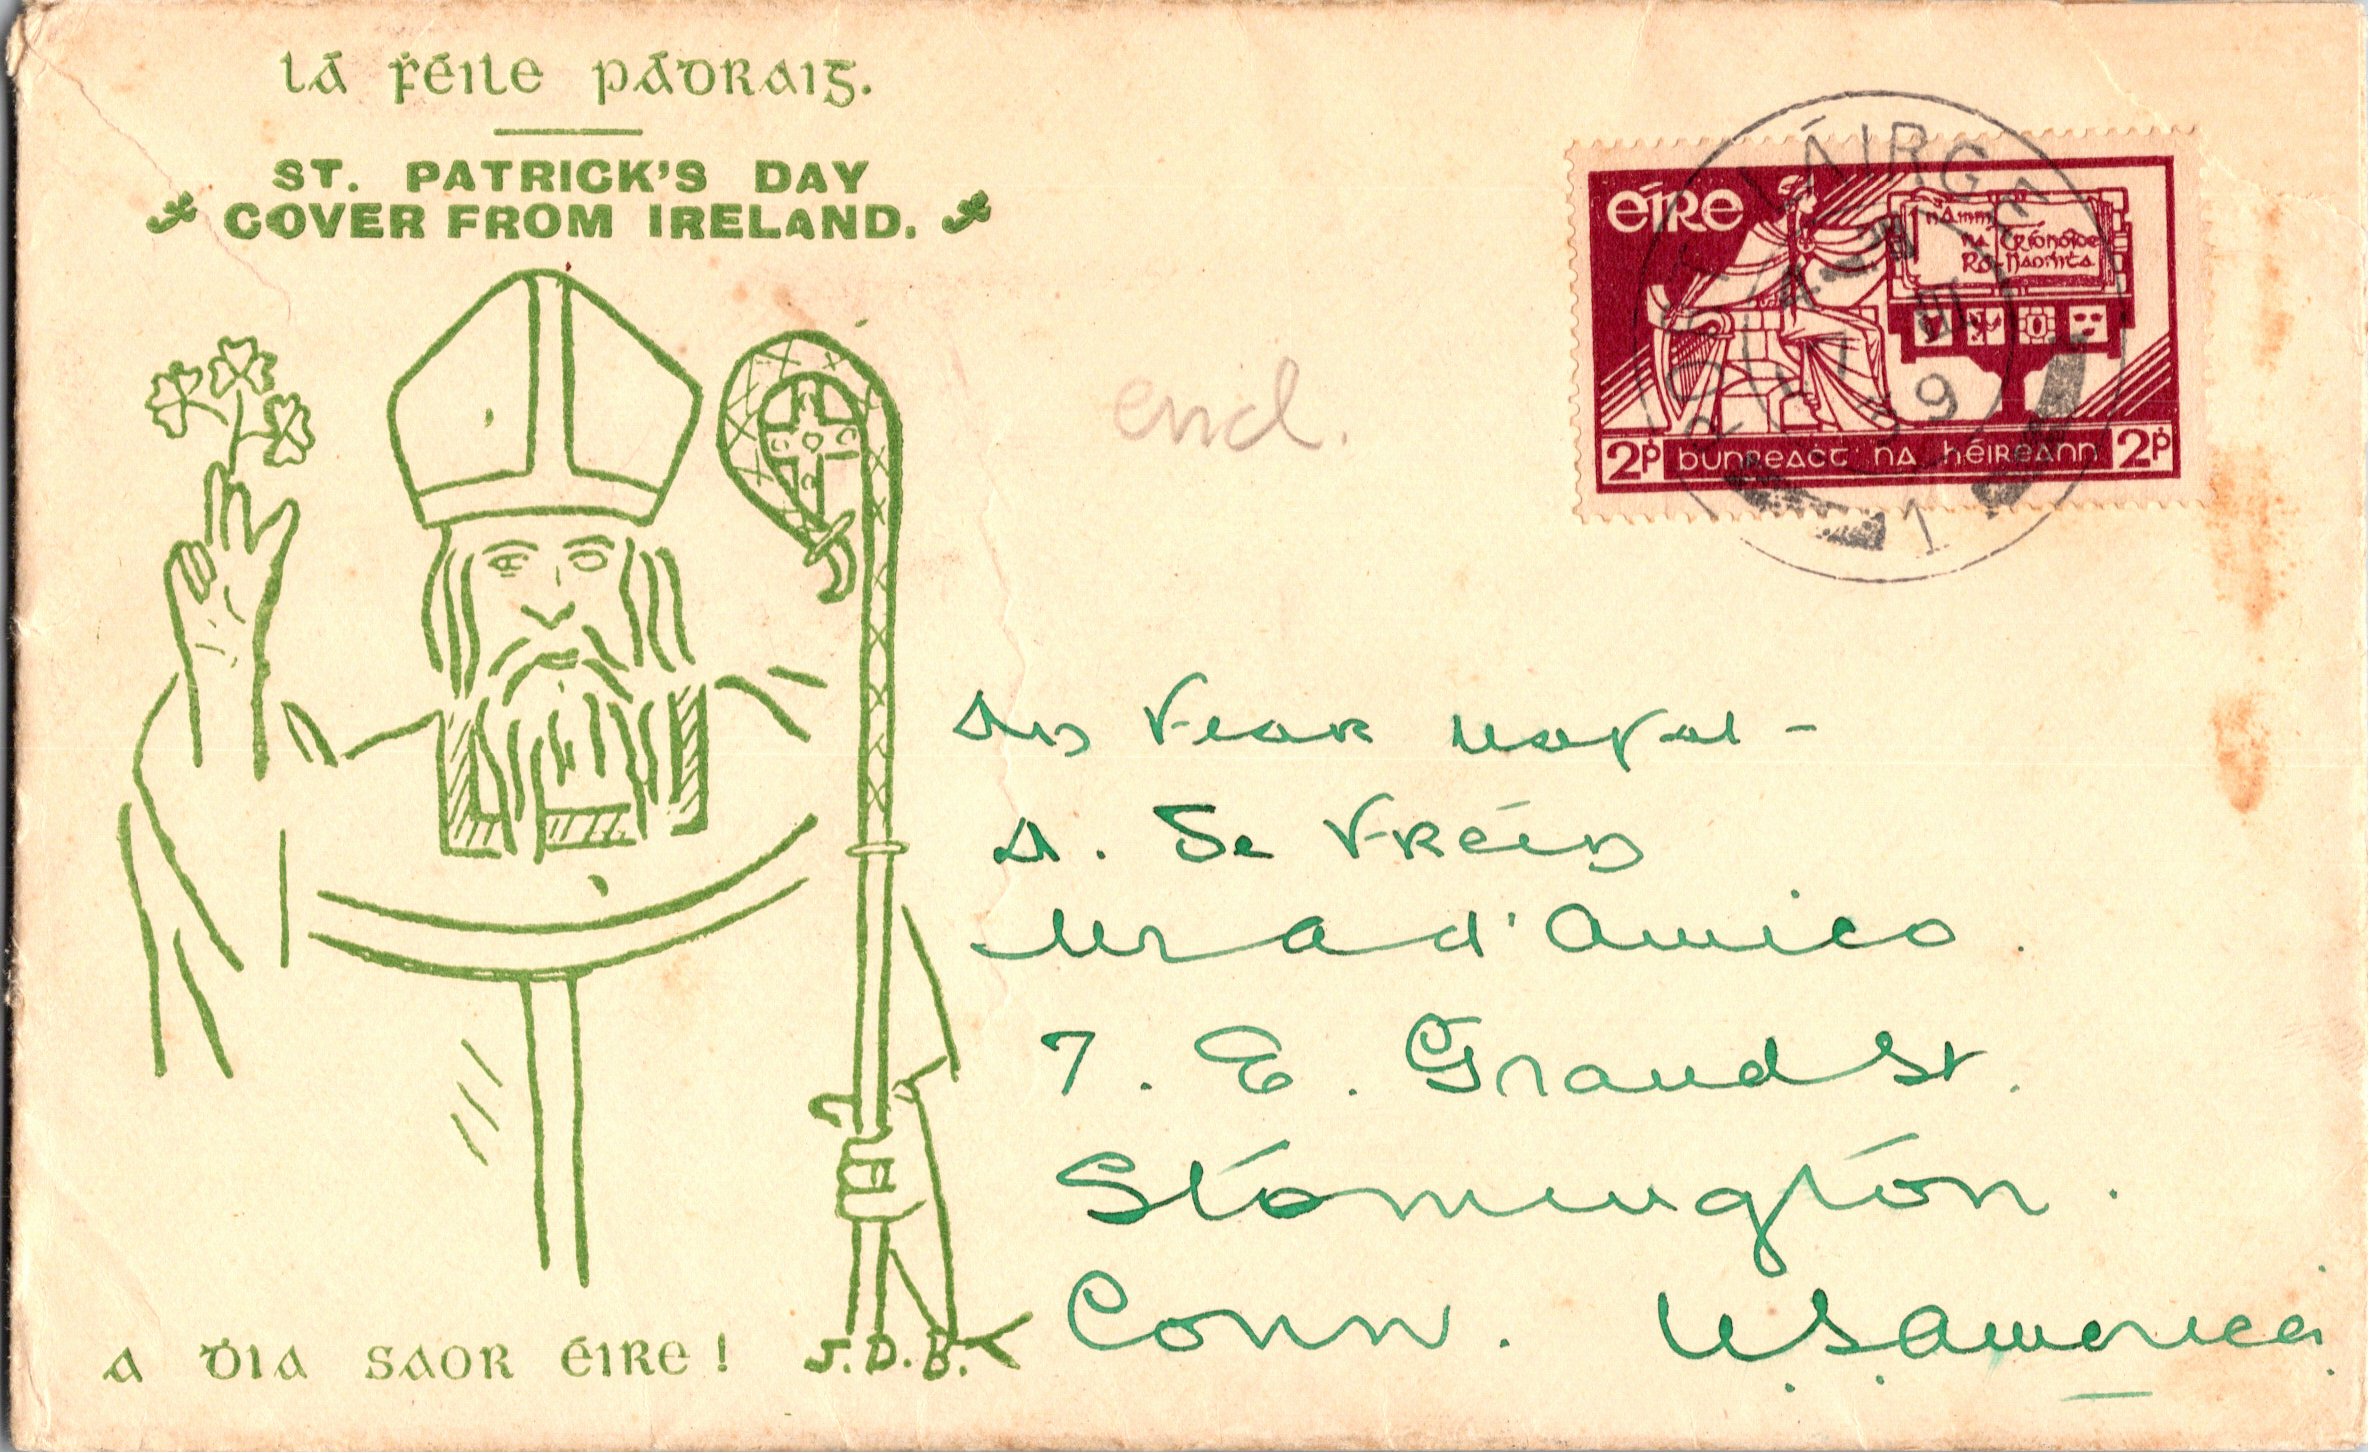 Lá Ḟéile Pádraig.
ST. PATRICK'S DAY
COVER FROM IRELAND.
A Ḋia Saor Éire!
J.D.B.
encl.
Éire
I nAinm
na Tríonóide
Ró-Naoṁṫa
2ṗ Bunreaċt na hÉireann 2ṗ
PORT LÁIRGE
17 III
39
1
An Fear Uasal -
A. De Fréin
d'Amico.
7. E. Grand St.
Stonington.
Conn. U.S. America.